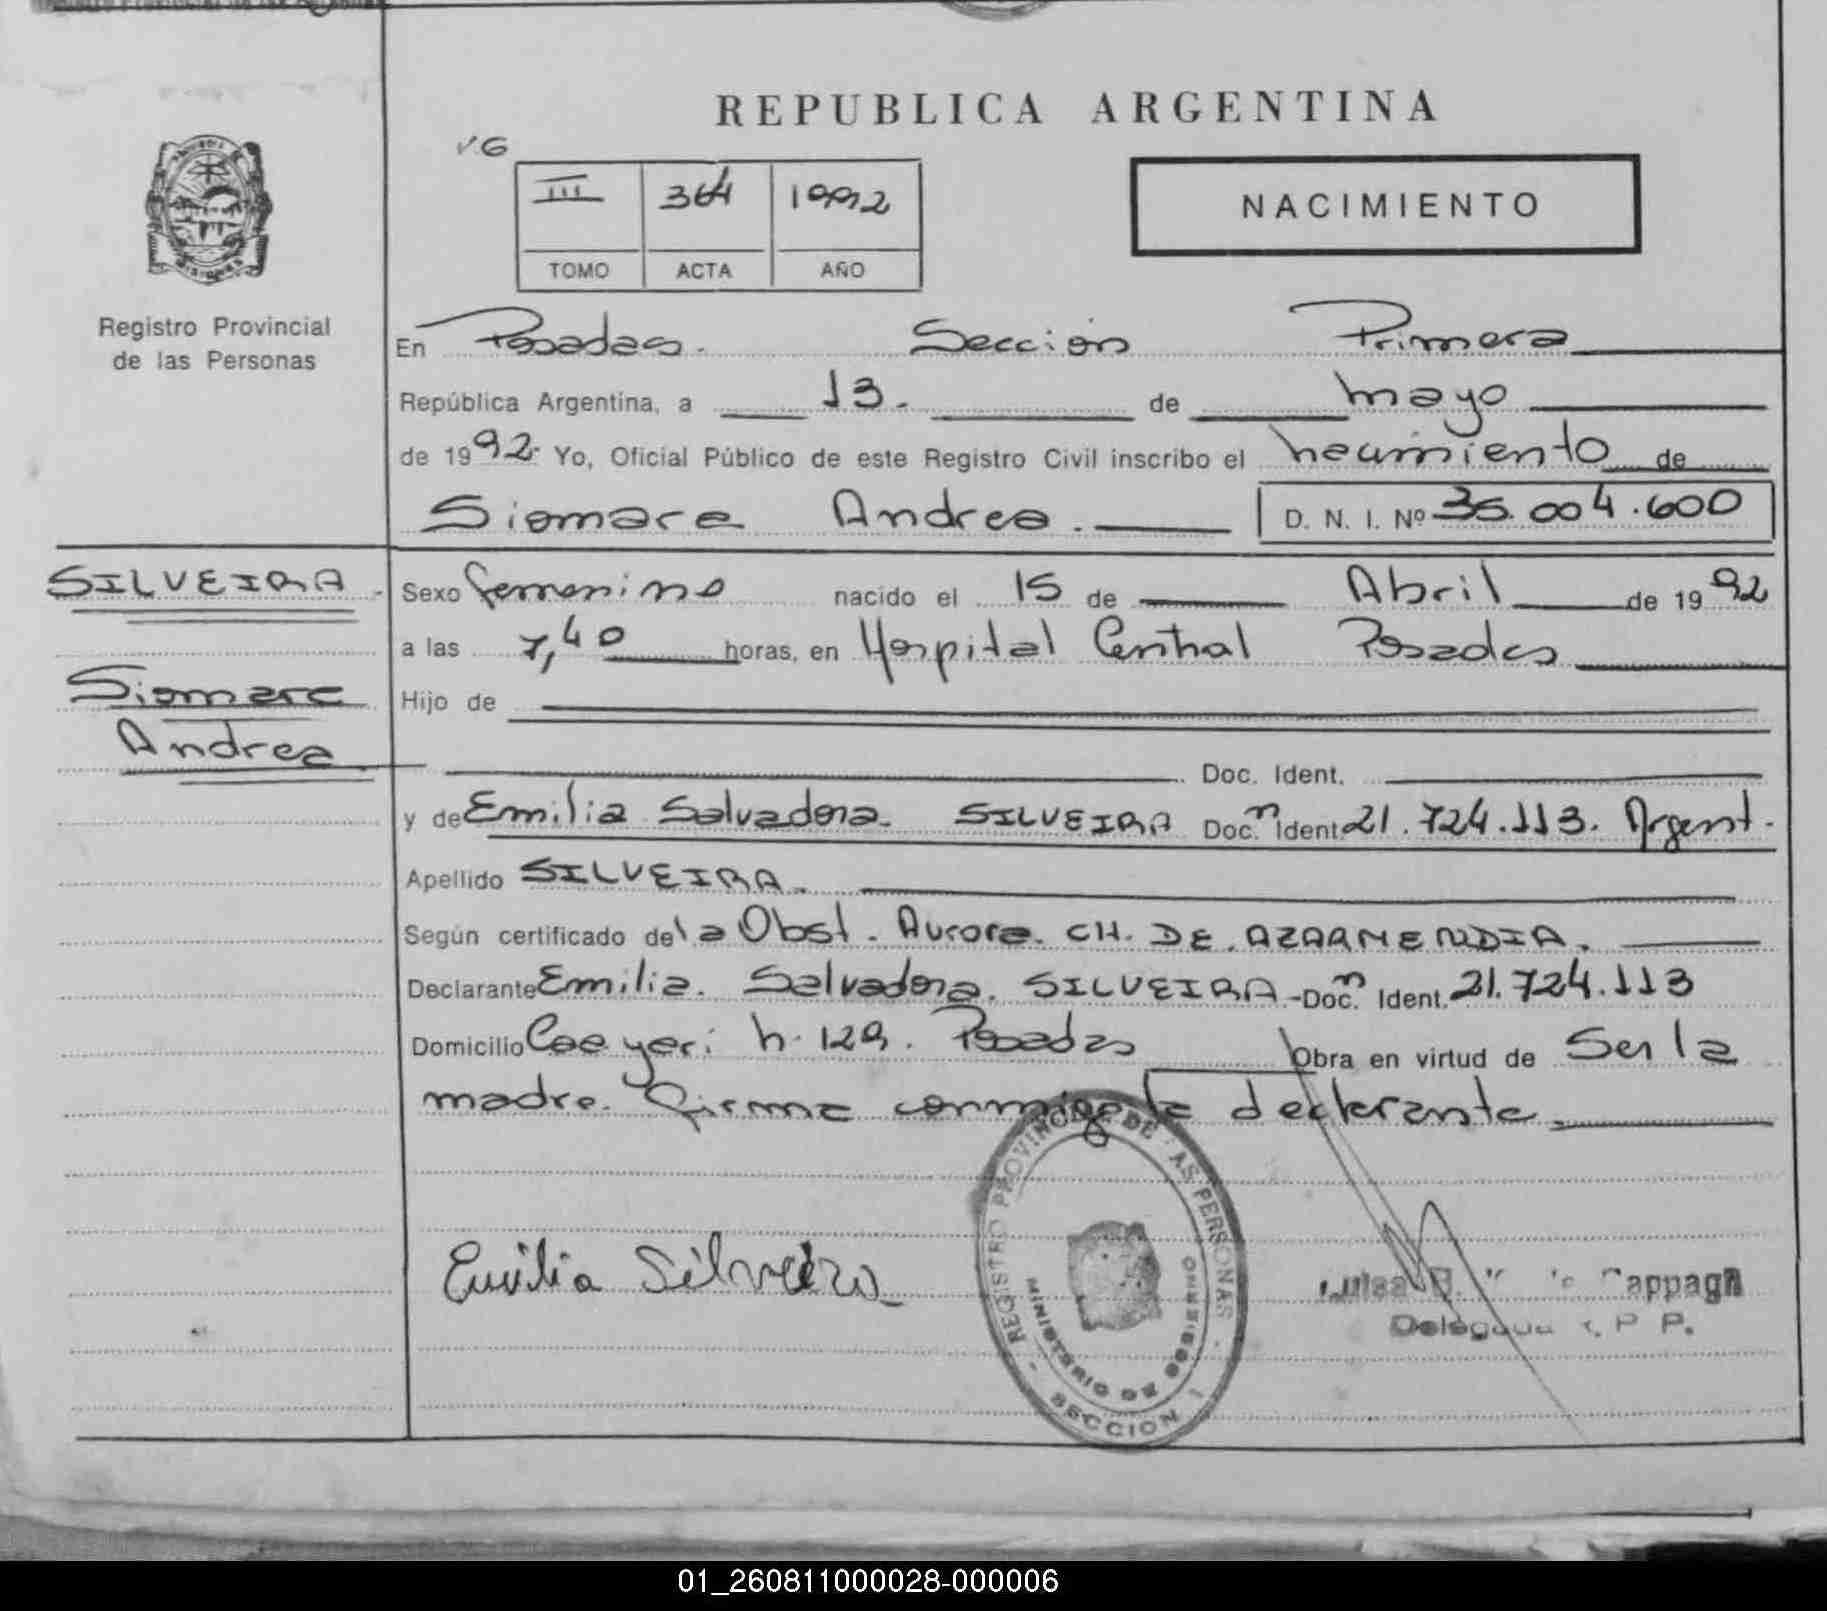 REPUBLICA ARGENTINA
III 364 1992
TOMO ACTA AÑO
NACIMIENTO
Registro Provincial
de las Personas
En Posadas. Sección Primera
República Argentina, a 13. de mayo
de 1992. Yo, Oficial Público de este Registro Civil inscribo el nacimiento de
Siomara Andrea. D. N. I. Nº 35.004.600
SILVEIRA
Siomara
Andrea
Sexo femenino nacido el 15 de Abril de 1992
a las 7,40 horas, en Hospital Central Posadas
Hijo de
Doc. Ident.
y de Emilia Salvadora SILVEIRA Doc. Ident. 21.724.113. Argent.
Apellido SILVEIRA.
Según certificado de la Obst. Aurora CH. DE AZARMENDIA.
Declarante Emilia Salvadora SILVEIRA - Doc. Ident. 21.724.113
Domicilio n. 129. Posadas Obra en virtud de Ser la
madre. Firma conmigo la declarante
Emilia Silveira
REGISTRO PROVINCIAL DE LAS PERSONAS
MINISTERIO DE GOBIERNO
SECCION 1
Luisa
Delegada R. P. P.
01_260811000028-000006